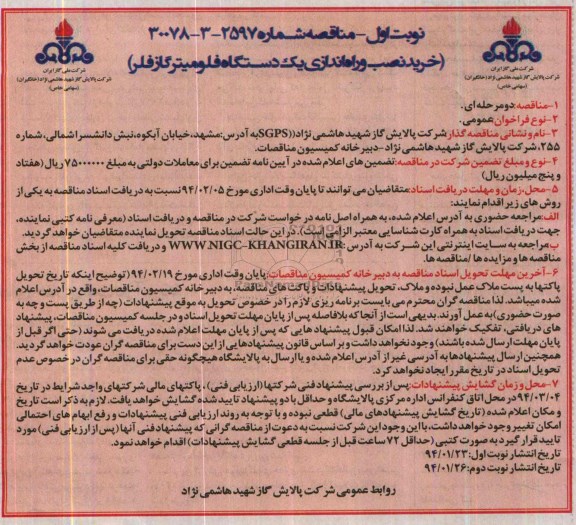 نوبت اول - مناقصه شماره ۲۵۹۷-۳-۳۰۰۷۸
(خرید نصب و راه اندازی یک دستگاه فلومیتر گاز فلر)
شرکت ملی گاز ایران
شرکت پالایش گاز شهید هاشمی نژاد (خانگیران)
(سهامی خاص)
شرکت ملی گاز ایران
شرکت پالایش گاز شهید هاشمی نژاد (خانگیران)
(سهامی خاص)
۱-مناقصه: دو مرحله ای.
۲-نوع فراخوان: عمومی.
۳-نام و نشانی مناقصه گذار: شرکت پالایش گاز شهید هاشمی نژاد((SGPS به آدرس: مشهد، خیابان آبکوه، نبش دانشسرا شمالی، شماره
۲۵۵، شرکت پالایش گاز شهید هاشمی نژاد - دبیرخانه کمیسیون مناقصات.
۴-نوع و مبلغ تضمین شرکت در مناقصه: تضمین های اعلام شده در آیین نامه تضمین برای معاملات دولتی به مبلغ ۷۵۰۰۰۰۰۰ ریال (هفتاد
و پنج میلیون ریال)
۵-محل، زمان و مهلت دریافت اسناد: متقاضیان می توانند تا پایان وقت اداری مورخ ۹۴/۰۲/۰۵ نسبت به دریافت اسناد مناقصه به یکی از
روش های زیر اقدام نمایند:
الف: مراجعه حضوری به آدرس اعلام شده، به همراه اصل نامه درخواست شرکت در مناقصه و دریافت اسناد (معرفی نامه کتبی نماینده،
جهت دریافت اسناد به همراه کارت شناسایی معتبر الزامی است). در این حالت اسناد مناقصه تحویل نماینده متقاضیان خواهد گردید.
ب: مراجعه به سایت اینترنتی این شرکت به آدرس: WWW.NIGC-KHANGIRAN.IR و دریافت کلیه اسناد مناقصه از بخش
مناقصه ها و مزایده ها /مناقصه ها.
۶-آخرین مهلت تحویل اسناد مناقصه به دبیرخانه کمیسیون مناقصات: پایان وقت اداری مورخ ۹۴/۰۲/۱۹ (توضیح اینکه تاریخ تحویل
پاکتها به پست ملاک عمل نبوده و ملاک، تحویل پیشنهادات و پاکت های مناقصه، به دبیرخانه کمیسیون مناقصات، واقع در آدرس اعلام
شده میباشد. لذا مناقصه گران محترم می بایست برنامه ریزی لازم را در خصوص تحویل به موقع پیشنهادات (چه از طریق پست و چه به
صورت حضوری) به عمل آورند. بدیهی است از آنجا که بلافاصله پس از پایان مهلت تحویل اسناد و در جلسه کمیسیون مناقصات، پیشنهاد
های دریافتی، تفکیک خواهند شد. لذا امکان قبول پیشنهاد هایی که پس از پایان مهلت اعلام شده دریافت می شوند (حتی اگر قبل از
پایان مهلت ارسال شده باشند) وجود نخواهد داشت و بر اساس قانون پیشنهادهایی از این دست برای مناقصه گران عودت خواهد گردید.
همچنین ارسال پیشنهادها به آدرسی غیر از آدرس اعلام شده و یا ارسال به پالایشگاه هیچگونه حقی برای مناقصه گران در خصوص عدم
تحویل اسناد در تاریخ مقرر ایجاد نخواهد کرد.
۷-محل و زمان گشایش پیشنهادات: پس از بررسی پیشنهاد فنی شرکتها (ارزیابی فنی)، پاکتهای مالی شرکتهای واجد شرایط در تاریخ
۹۴/۰۳/۰۴ در محل اتاق کنفرانس اداره مرکزی پالایشگاه و حداقل با دو پیشنهاد تایید شده گشایش خواهد یافت. لازم به ذکر است تاریخ
و مکان اعلام شده (تاریخ گشایش پیشنهادهای مالی) قطعی نبوده و با توجه به روند ارزیابی فنی پیشنهادات و رفع ابهام های احتمالی
امکان تغییر وجود خواهد داشت، با این وجود این شرکت نسبت به دعوت از مناقصه گرانی که پیشنهاد فنی آنها (پس از ارزیابی فنی) مورد
تایید قرار گیرد به صورت کتبی (حداقل ۷۲ ساعت قبل از جلسه قطعی گشایش پیشنهادات) اقدام خواهد نمود.
تاریخ انتشار نوبت اول: ۹۴/۰۱/۲۳
تاریخ انتشار نوبت دوم: ۹۴/۰۱/۲۶
روابط عمومی شرکت پالایش گاز شهید هاشمی نژاد